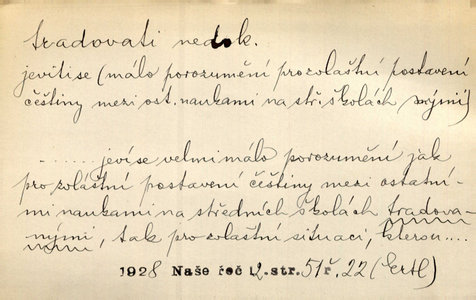 tradovati nedok.
jeviti se (málo porozumění pro zvláštní postavení
češtiny mezi ost. naukami na stř. školách nými)
....... jeví se velmi málo porozumění jak
pro zvláštní postavení češtiny mezi ostatní-
mi naukami na středních školách tradova-
nými, tak pro zvláštní situaci, kterou....
1928 Naše řeč 12. str. 51 ř. 22 (Ertl)